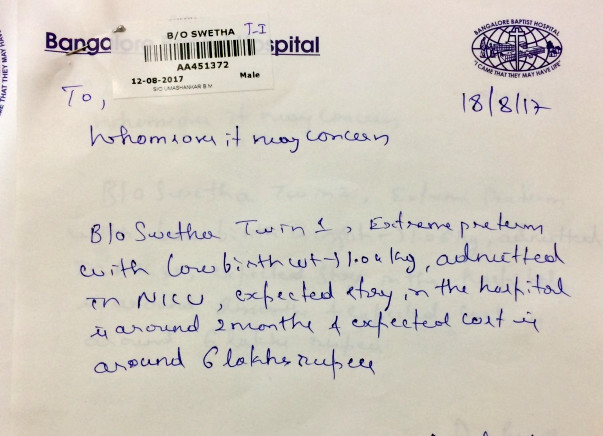 Bangalore Baptist Hospital
B/O SWETHA T-I
AA451372
12-08-2017 Male
S/O UMASHANKAR B M
BANGALORE BAPTIST HOSPITAL
"I CAME THAT THEY MAY HAVE LIFE"
E THAT THEY MAY HAVE
To,
18/8/17
Whomsover it may concern
B/o Swetha Twin 1, Extreme preterm
with low birth wt → 1.04 kg, admitted
in NICU, expected stay in the hospital
is around 2 months & expected cost is
around 6 lakhs rupee